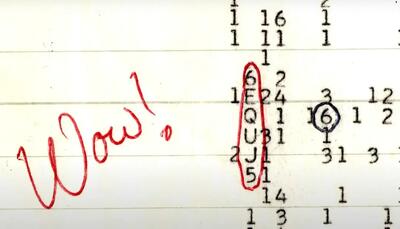 1 16 1
1 11 1
1
6 2
1 E 24 3 12
Wow! Q 1 16 1 2
U 31 1
2 J 1 31 3 1
5 1
14 1
1 3 1 1